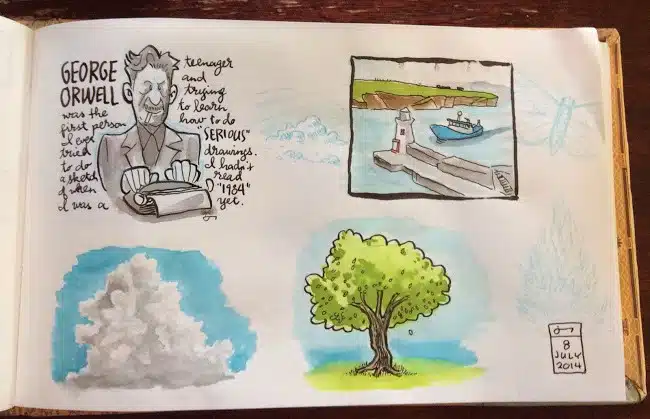 GEORGE
ORWELL
was the
first person
I ever
tried
to do
a sketch
of when
I was a
teenager
and
trying
to learn
how to do
"SERIOUS"
drawings.
I hadn't
read
"1984"
yet.
8
JULY
2014